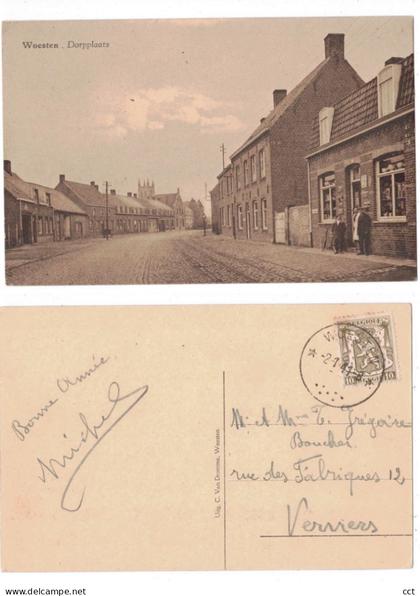 Woesten . Dorpplaats
Bonne Année
Michel
Uitg. C. Van Damme, Woesten
BELGIQUE
10 10
M. & Mme E. Grégoire
Boucher
rue des Fabriques 12
Verviers
cct